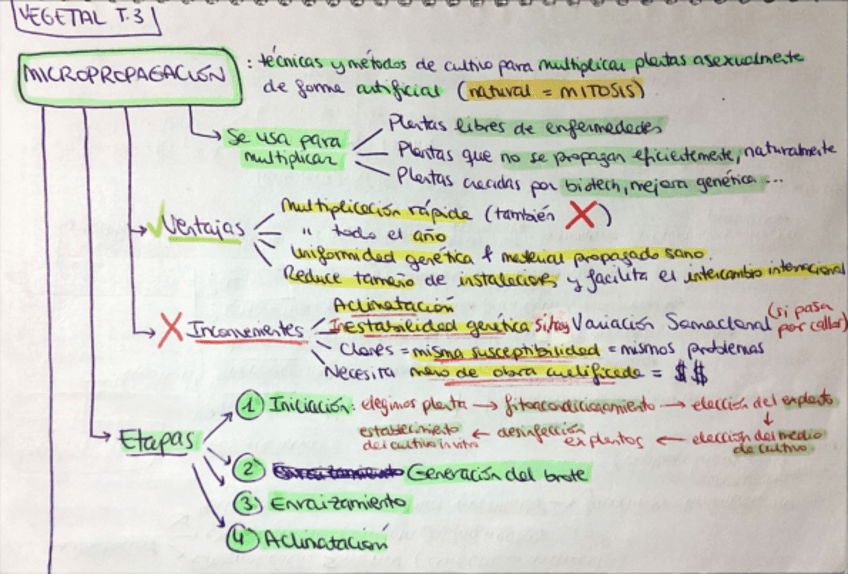 VEGETAL T.3
MICROPROPAGACIÓN : técnicas y métodos de cultivo para multiplicar plantas asexualmente
de forma artificial (natural = MITOSIS)
Se usa para
multiplicar
Plantas libres de enfermedades
Plantas que no se propagan eficientemente, naturalmente
Plantas creadas por biotech, mejora genética...
✓ Ventajas
Multiplicación rápida (también X)
" todo el año
Uniformidad genética + material propagado sano.
Reduce tamaño de instalaciones y facilita el intercambio internacional
X Inconvenientes
Aclimatación
Inestabilidad genética Si hay Variación Somaclonal (si pasa
por callor)
Clones = misma susceptibilidad = mismos problemas
Necesita mano de obra cualificada = $$
Etapas
1 Iniciación: elegimos planta → fitoacondicionamiento → elección del explanto
→ elección del medio
de cultivo → explantos
desinfección → establecimiento
del cultivo in vitro
2 Generación del brote
3 Enraizamiento
4 Aclimatación